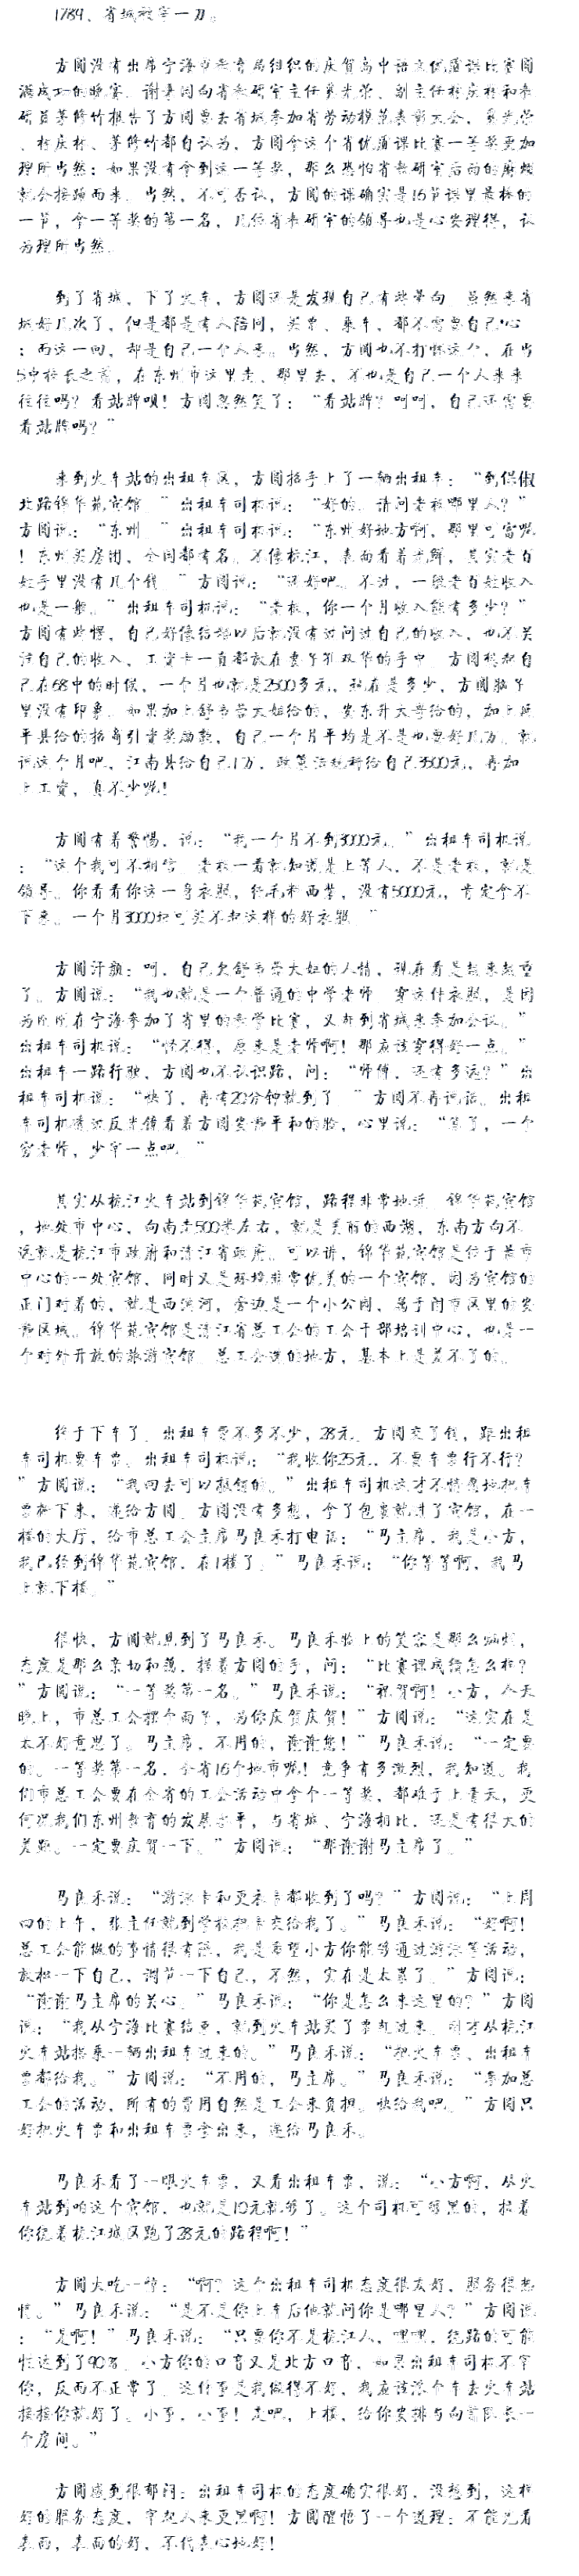 1789、省城被宰一刀。
方圆没有出席宁海市教育局组织的庆贺高中语文优质课比赛圆
满成功的晚宴。谢事因向省教研室主任
研员茅修竹报告了方圆要去省城参加省劳动模范表彰大会，
、茅修竹都自认为，方圆拿这个省优质课比赛一等奖更加
理所当然：如果没有拿到这一等奖，那么恐怕省教研室后面的麻烦
就会接踵而来。当然，不可否认，方圆的课确实是16节课里最棒的
一节，拿一等奖的第一名，几位省教研室的领导也是心安理得，认
为理所当然。
到了省城，下了火车，方圆还是发现自己有些晕向。虽然来省
城好几次了，但是都是有人陪同，买票、乘车，都不需要自己心
；而这一回，却是自己一个人来。当然，方圆也不打怵这个，在当
5中校长之前，在东州市这里走、那里去，不也是自己一个人来来
往往吗？看站牌呗！方圆忽然笑了：“看站牌？呵呵，自己还需要
看站牌吗？”
来到火车站的出租车区，方圆招手上了一辆出租车：“到保俶
北路锦华苑宾馆。”出租车司机说：“好的。请问老板哪里人？”
方圆说：“东州。”出租车司机说：“东州好地方啊，那里可富呢
！东州买房团，全国都有名。不像杭江，表面看着光鲜，其实老百
姓手里没有几个钱。”方圆说：“还好吧。不过，一般老百姓收入
也是一般。”出租车司机说：“老板，你一个月收入能有多少？”
方圆有些愣，自己好像结婚以后就没有过问过自己的收入，也不关
注自己的收入，工资卡一直都放在妻子孔双华的手中。方圆想起自
己在58中的时候，一个月也就是2500多元，现在是多少，方圆脑子
里没有印象。如果加上舒书蕾大姐给的，安东升大哥给的，加上延
平县给的招商引资奖励款，自己一个月平均是不是也要好几万。就
说这个月吧，江南县给自己1万，政策法规科给自己3500元，再加
上工资，真不少呢！
方圆有着警惕，说：“我一个月不到3000元。”出租车司机说
：“这个我可不相信。老板一看就知道是上等人，不是老板，就是
领导。你看看你这一身衣服，纯毛料西装，没有5000元，肯定拿不
下来。一个月3000块可买不起这样的好衣服。”
方圆汗颜：呵，自己欠舒书蕾大姐的人情，现在看是越来越重
了。方圆说：“我也就是一个普通的中学老师。穿这件衣服，是因
为刚刚在宁海参加了省里的教学比赛，又赶到省城来参加会议。”
出租车司机说：“怪不得，原来是老师啊！那应该穿得好一点。”
出租车一路行驶，方圆也不认识路，问：“师傅，还有多远？”出
租车司机说：“快了，再有20分钟就到了。”方圆不再说话。出租
车司机透过反光镜看着方圆安静平和的脸，心里说：“算了，一个
穷老师，少宰一点吧。”
其实从杭江火车站到锦华苑宾馆，路程非常地近。锦华苑宾馆
，地处市中心，向南走500米左右，就是美丽的西湖，东南方向不
远就是杭江市政府和清江省政府。可以讲，锦华苑宾馆是位于老市
中心的一处宾馆，同时又是环境非常优美的一个宾馆，因为宾馆的
正门对着的，就是西溪河，旁边是一个小公园，属于闹市区里的安
静区域。锦华苑宾馆是清江省总工会的工会干部培训中心，也是一
个对外开放的旅游宾馆。总工会选的地方，基本上是差不了的。
终于下车了。出租车费不多不少，28元。方圆交了钱，跟出租
车司机要车票。出租车司机说：“我收你25元，不要车票行不行？
”方圆说：“我回去可以报销的。”出租车司机这才不情愿地把车
票撕下来，递给方圆。方圆没有多想，拿了包裹就进了宾馆，在一
楼的大厅，给市总工会主席马良禾打电话：“马主席，我是小方，
我已经到锦华苑宾馆，在1楼了。”马良禾说：“你等等啊，我马
上就下楼。”
很快，方圆就见到了马良禾。马良禾脸上的笑容是那么灿烂，
态度是那么亲切和蔼，握着方圆的手，问：“比赛课成绩怎么样？
”方圆说：“一等奖第一名。”马良禾说：“祝贺啊！小方，今天
晚上，市总工会摆个面子，为你庆贺庆贺！”方圆说：“这实在是
太不好意思了。马主席，不用的，谢谢您！”马良禾说：“一定要
的。一等奖第一名，全省16个地市呢！竞争有多激烈，我知道。我
们市总工会要在全省的工会活动中拿个一等奖，都难于上青天，更
何况我们东州教育的发展水平，与省城、宁海相比，还是有很大的
差距。一定要庆贺一下。”方圆说：“那谢谢马主席了。”
马良禾说：“游泳卡和更衣卡都收到了吗？”方圆说：“上周
四的上午，张主任就到学校把卡交给我了。”马良禾说：“好啊！
总工会能做的事情很有限，我是希望小方你能够通过游泳等活动，
放松一下自己，调节一下自己，不然，实在是太累了。”方圆说：
“谢谢马主席的关心。”马良禾说：“你是怎么来这里的？”方圆
说：“我从宁海比赛结束，就到火车站买了票赶过来，刚才从杭江
火车站搭乘一辆出租车过来的。”马良禾说：“把火车票、出租车
票都给我。”方圆说：“不用的，马主席。”马良禾说：“参加总
工会的活动，所有的费用自然是工会来负担。快给我吧。”方圆只
好把火车票和出租车票拿出来，递给马良禾。
马良禾看了一眼火车票，又看出租车票，说：“小方啊，从火
车站到咱这个宾馆，也就是10元就够了。这个司机可够黑的，拉着
你绕着杭江城区跑了28元的路程啊！”
方圆大吃一惊：“啊？这个出租车司机态度很友好，服务很热
情。”马良禾说：“是不是你上车后他就问你是哪里人？”方圆说
：“是啊！”马良禾说：“只要你不是杭江人，嘿嘿，绕路的可能
性达到了90%。小方你的口音又是北方口音，如果出租车司机不宰
你，反而不正常了。这件事是我做得不好，我应该派个车去火车站
接接你就好了。小事，小事！走吧，上楼，给你安排与向雷队长一
个房间。”
方圆感到很郁闷：出租车司机的态度确实很好，没想到，这样
好的服务态度，宰起人来更黑啊！方圆醒悟了一个道理：不能光看
表面，表面的好，不代表心地好！